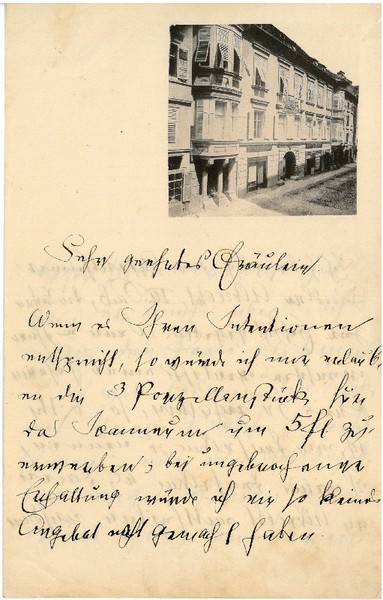 Sehr geehrtes Fräulein.
Wenn es Ihren Intentionen
entspricht, so würde ich mir erlaub-
en die 3 Porzellanstück für
das Joanneum um 5 fl zu
erwerben; bei ungebrochener
Erhaltung würde ich ein so kleines
Angebot nicht gemacht haben.